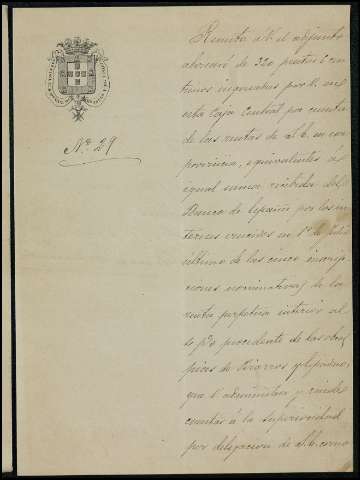 Nº 29
Remito á V. el adjunto
abonaré de 320 pesetas cén
timos ingresadas por V. en
esta Caja Central por cuenta
de las rentas de S. E. en esa
provincia, equivalentes á
igual suma recibida del
Banco de España por los in
tereses vencidos en 1º de Julio
último de las cinco inscrip
ciones nominativas de la
renta perpétua interior al
4 p% procedente de las obras
pías de
que V. administra y rinde
cuentas á la superioridad
por delegacion de S. E. como